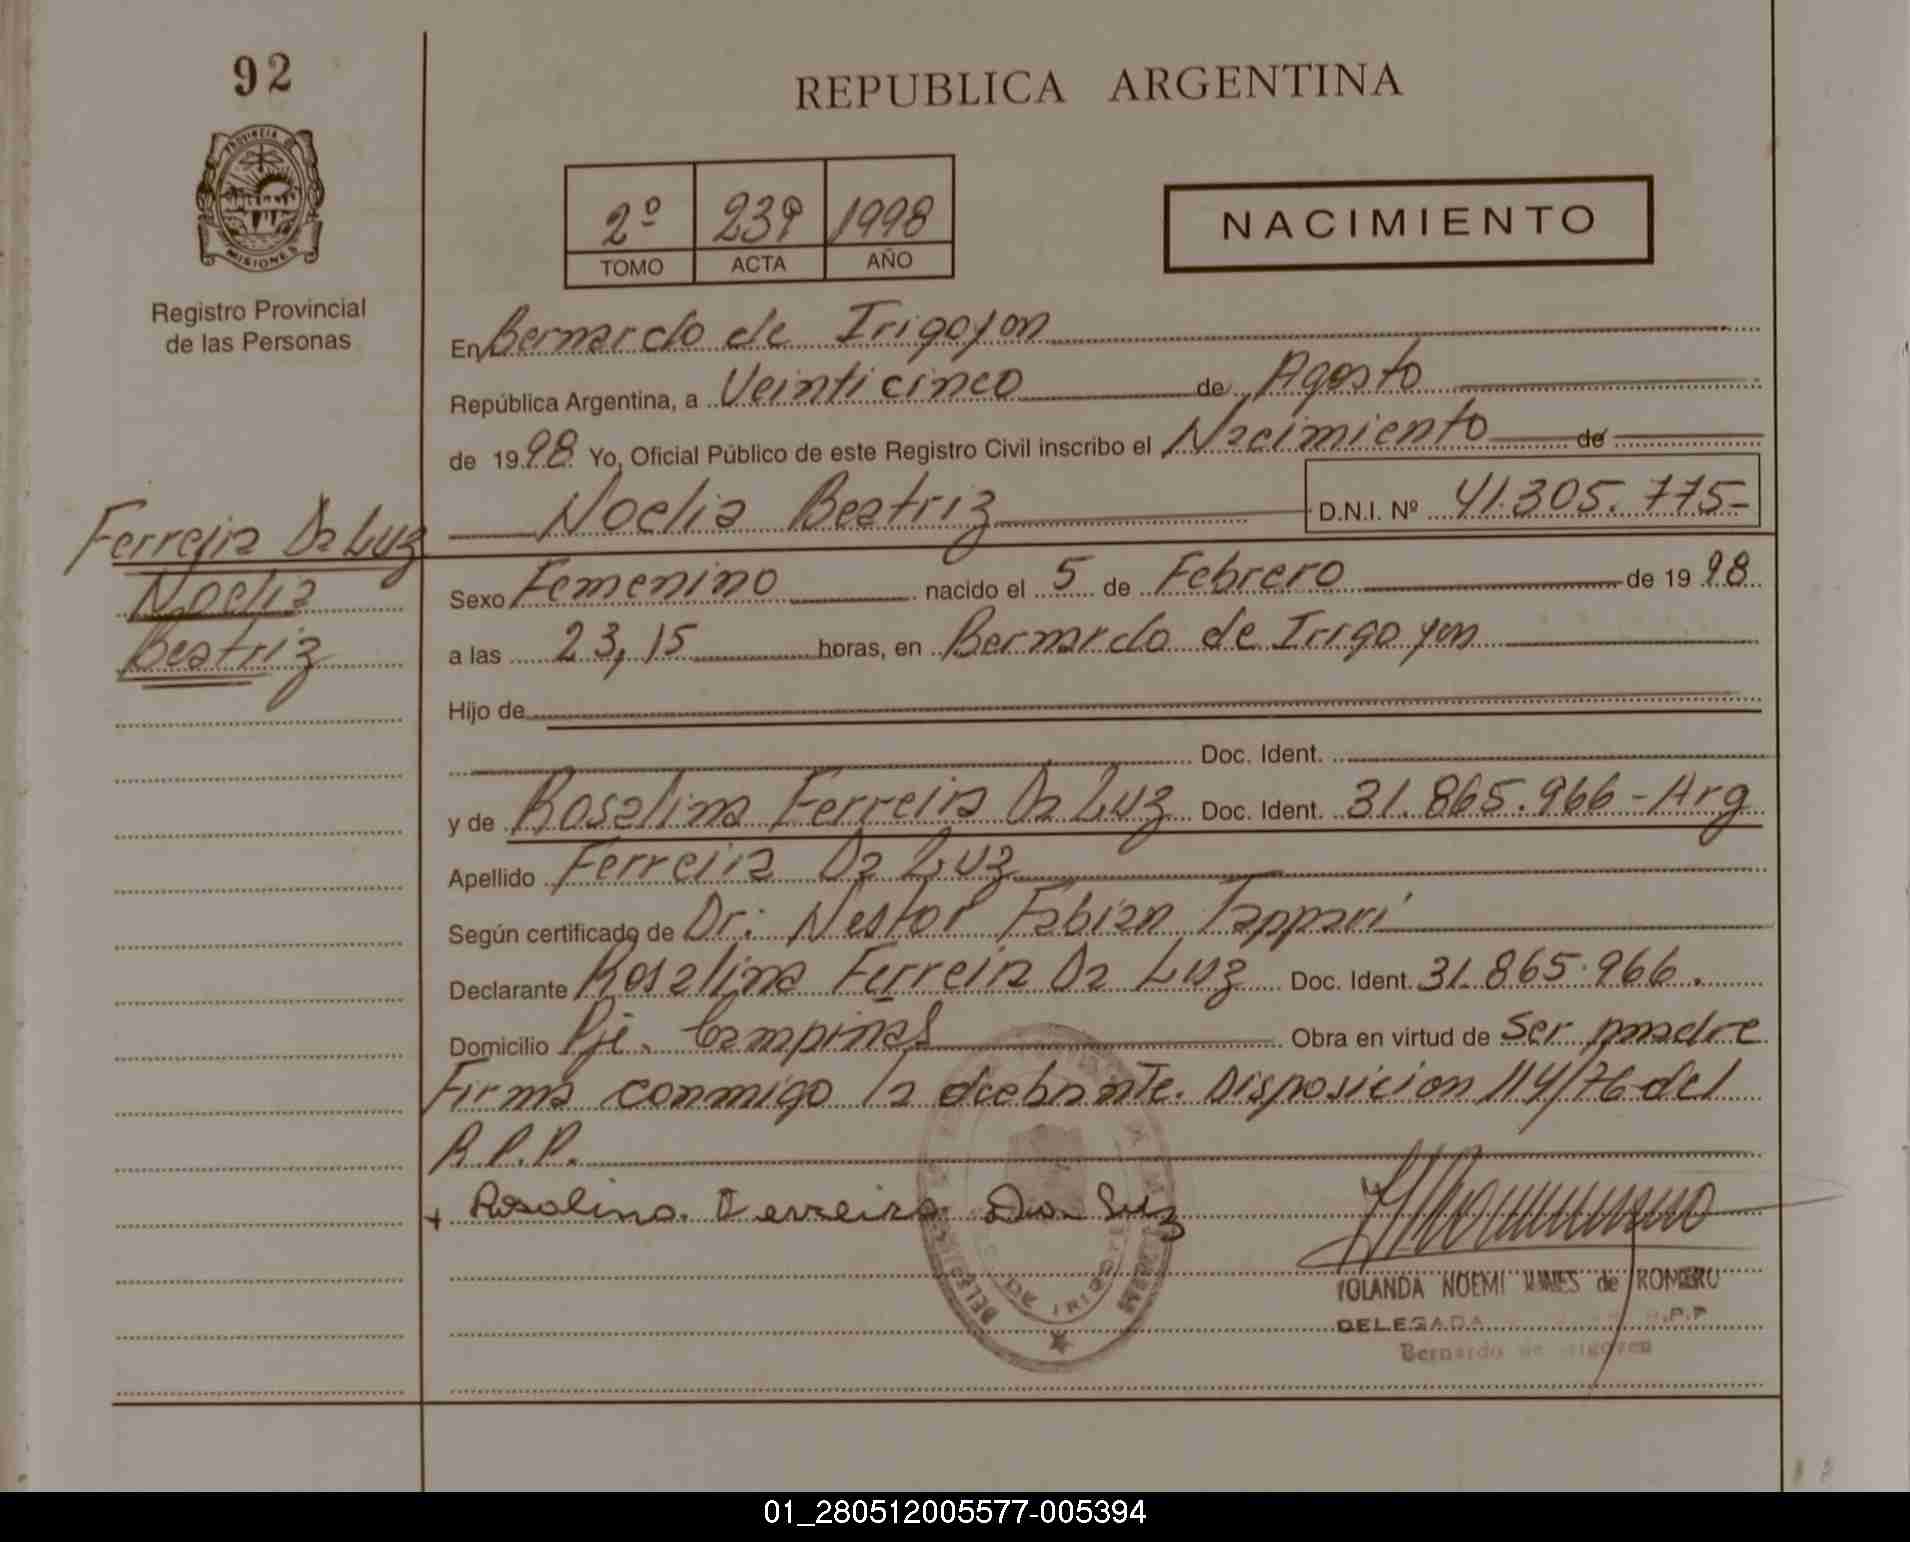 92
REPUBLICA ARGENTINA
PROVINCIA DE
MISIONES
Registro Provincial
de las Personas
2º 239 1998
TOMO ACTA AÑO
NACIMIENTO
En Bernardo de Irigoyen
República Argentina, a Veinticinco de Agosto
de 1998 Yo, Oficial Público de este Registro Civil inscribo el Nacimiento de
Noelia Beatriz D.N.I. Nº 41.305.775-
Ferreira Da Luz
Noelia
Beatriz
Sexo Femenino nacido el 5 de Febrero de 1998
a las 23,15 horas, en Bernardo de Irigoyen
Hijo de
Doc. Ident.
y de Rosalina Ferreira Da Luz Doc. Ident. 31.865.966-Arg
Apellido Ferreira Da Luz
Según certificado de Dr: Nestor Fabian Tappari
Declarante Rosalina Ferreira Da Luz Doc. Ident. 31.865.966.
Domicilio Pje. Campinas Obra en virtud de Ser madre
Firma conmigo la Disposicion 114/76 del
R.P.P.
+ Rosalina Ferreira Da Luz
YOLANDA NOEMI de ROMERO
DELEGADA R.P.P
Bernardo de Irigoyen
01_280512005577-005394